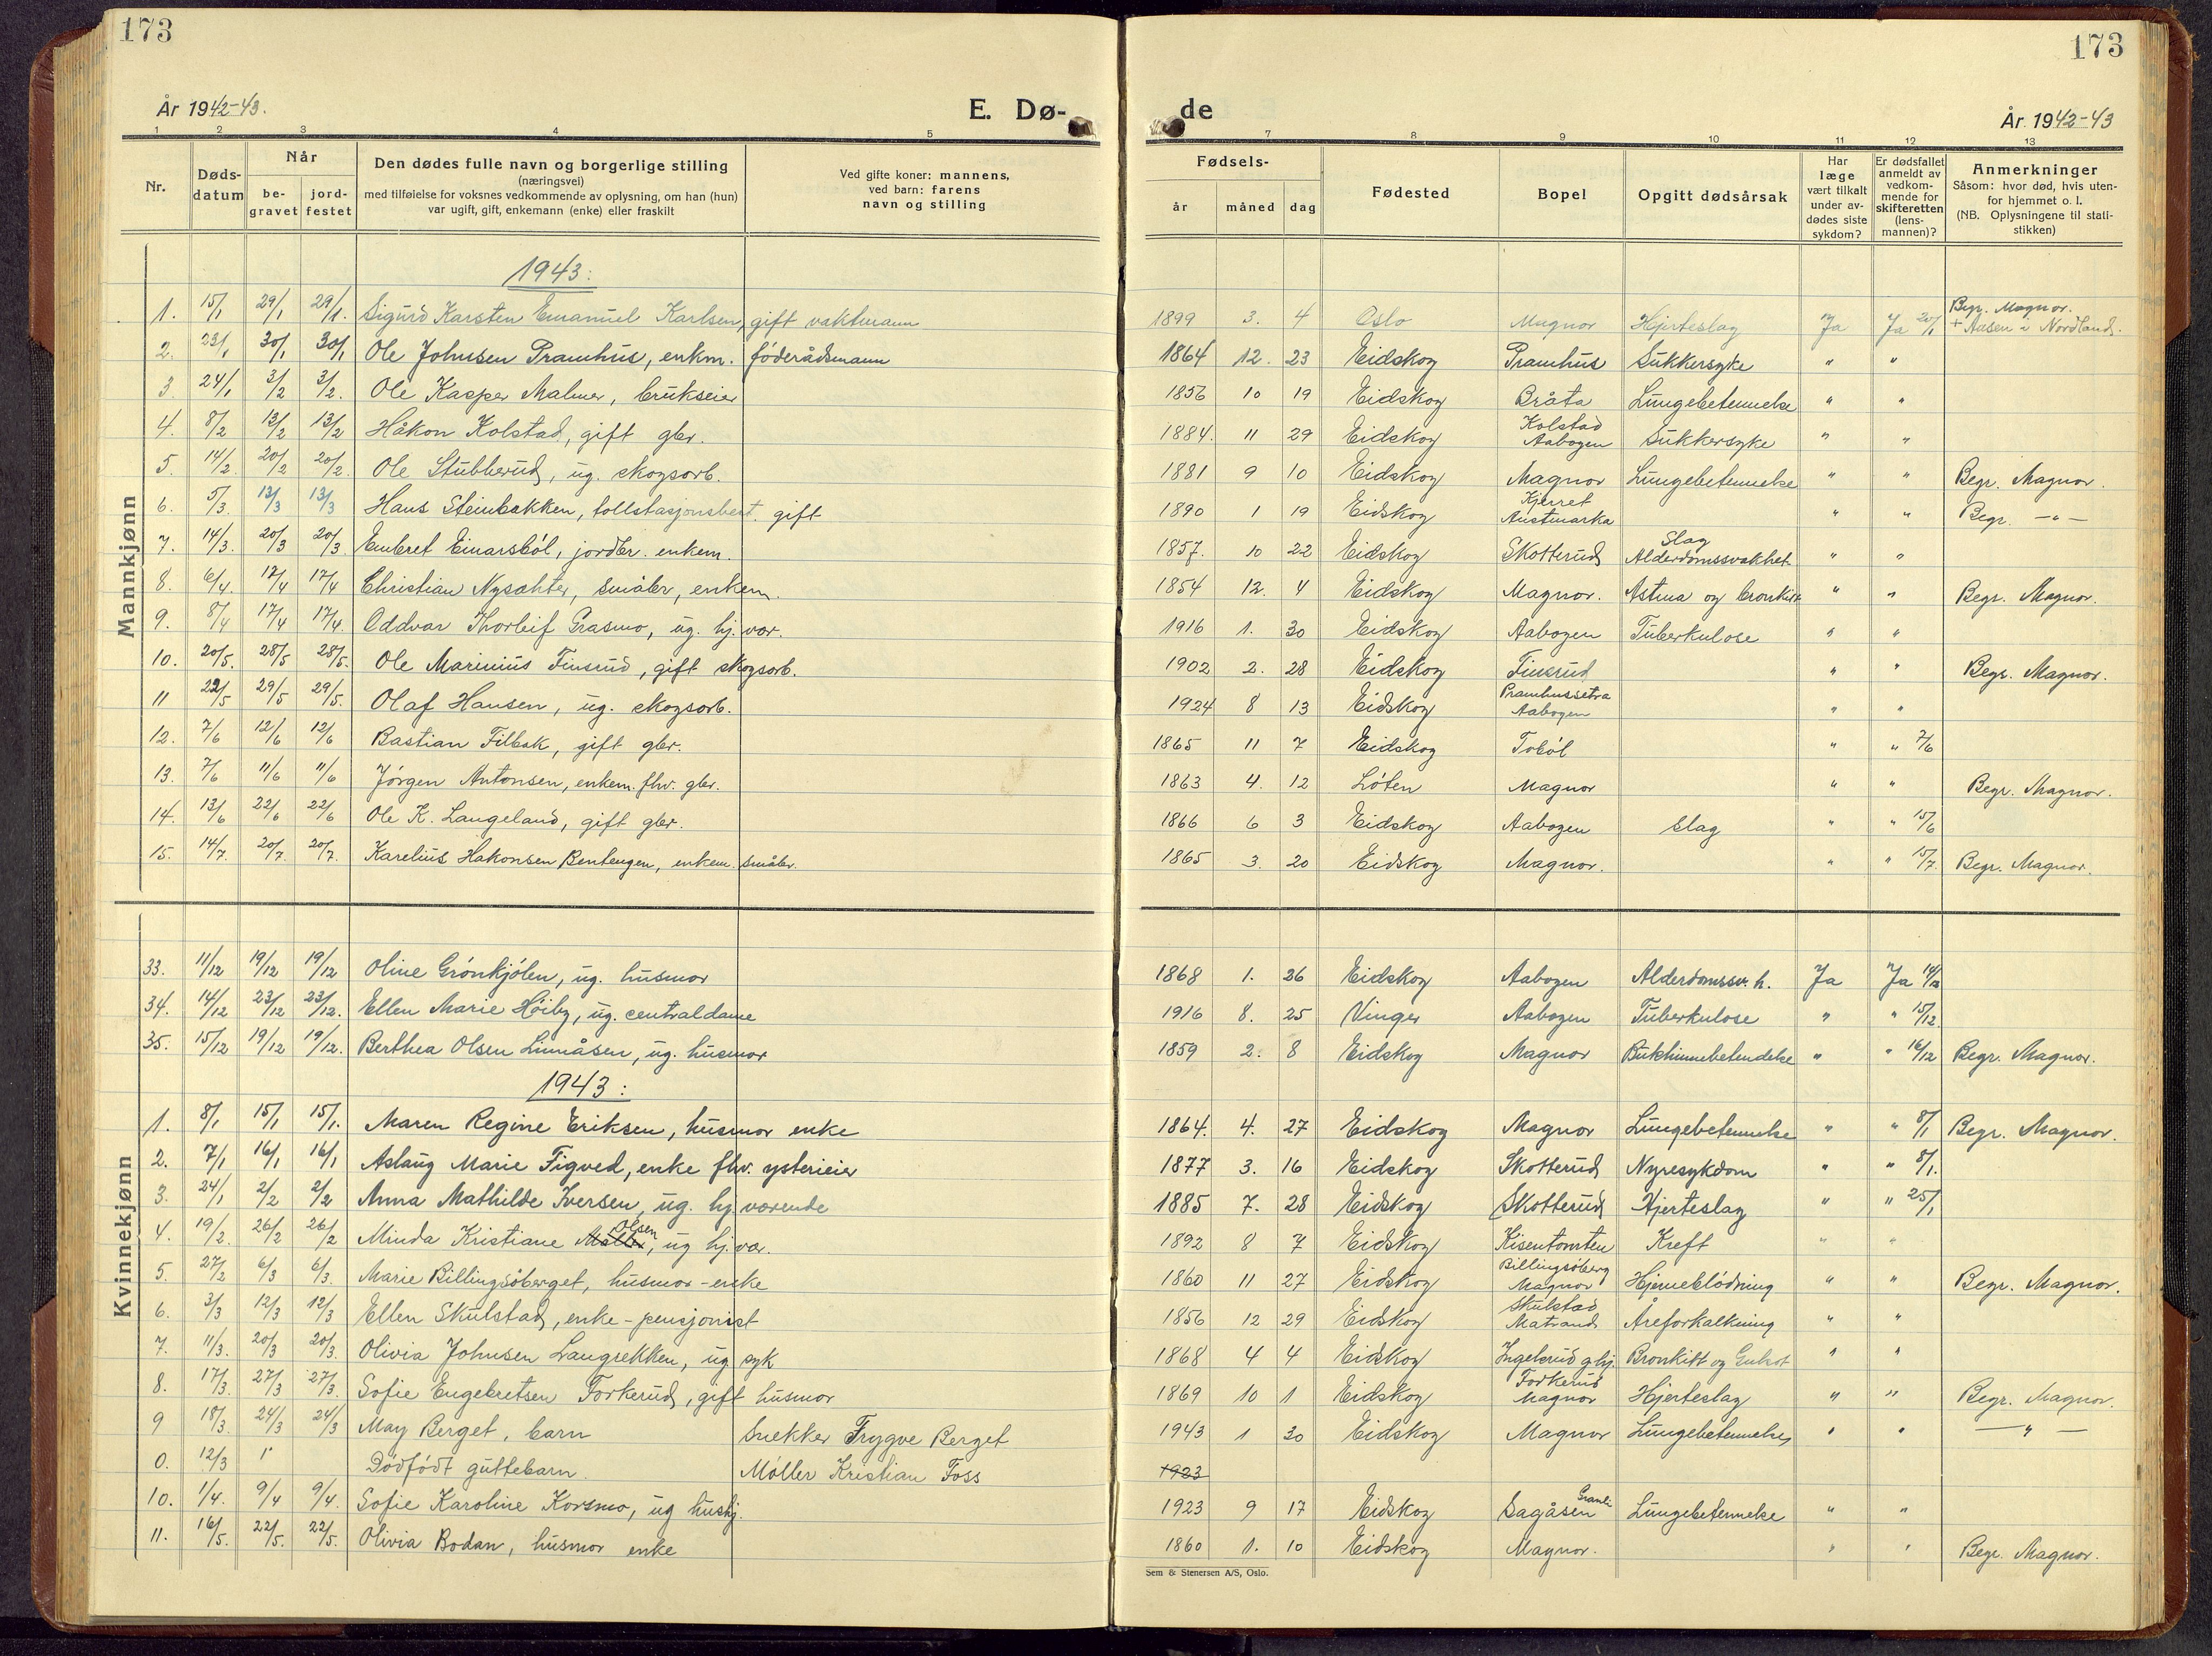 173
173
År 1942-43.
E. Dø-
de
År 1942-43
1 2 3 4 5 7 8 9 10 11 12 13
Nr.
Døds-datum
Når
be-gravet
jord-festet
Den dødes fulle navn og borgerlige stilling
(næringsvei)
med tilføielse for voksnes vedkommende av oplysning, om han (hun)
var ugift, gift, enkemann (enke) eller fraskilt
Ved gifte koner: mannens,
ved barn: farens
navn og stilling
Fødsels-
år måned dag
Fødested
Bopel
Opgitt dødsårsak
Har læge vært tilkalt under av-dødes siste sykdom?
Er dødsfallet anmeldt av vedkom-mende for skifteretten (lens-mannen)?
Anmerkninger
Såsom: hvor død, hvis uten-
for hjemmet o. l.
(NB. Oplysningene til stati-
stikken)
Mannkjønn
1943:
1. 15/1 29/1 29/1. Sigurd Karsten Emanuel Karlsen, gift vaktmann 1899 3. 4 Oslo Magnor Hjerteslag Ja Ja 20/1 Begr. Magnor. + Aasen i Nordland.
2. 23/1 30/1 30/1 Ole Johnsen Pramhus, enkm. føderådsmann 1864 12. 23 Eidskog Pramhus Sukkersyke " "
3 24/1 3/2 3/2. Ole Kasper Malmer, brukseier 1856 10 19 Eidskog Bråta Lungebetennelse " "
4. 8/2 13/2 13/2 Håkon Kolstad, gift gbr. 1884. 11 29 Eidskog Kolstad Aabogen Sukkersyke " "
5. 14/2. 20/2 20/2. Ole Stubberud, ug. skogsarb. 1881 9 10 Eidskog Magnor Lungebetennelse " " Begr. Magnor.
6. 5/3. 13/3 13/3 Hans Steinbakken, tollstasjonsbest. gift 1890 1 19 Eidskog Kjerret Austmarka " " Begr. —"—
7. 14/3. 20/3 20/3. Embret Einarsbøl, jordbr. enkem. 1857. 10 22 Eidskog Skotterud Slag Alderdomssvakhet " "
8. 6/4. 17/4 17/4 Christian Nysæhter, småbr, enkem. 1854 12. 4 Eidskog Magnor. Astma og bronkitt " " Begr. Magnor.
9. 8/4 17/4 17/4. Oddvar Thorleif Grasmo, ug. hj. vær. 1916 1. 30 Eidskog Aabogen Tuberkulose " "
10. 20/5. 28/5 28/5. Ole Marinius Finsrud, gift skogsarb. 1902 2. 28 Eidskog Finsrud " " Begr. Magnor.
11 22/5 29/5 29/5. Olaf Hansen, ug. skogsarb. 1924 8 13 Eidskog Pramhussetra Aabogen " "
12. 7/6 12/6 12/6 Bastian Filbak, gift gbr. 1865 11 7 Eidskog Tobøl " " 7/6
13. 7/6 11/6 11/6 Jørgen Antonsen, enkem. fhv. gbr. 1863 4. 12 Løten Magnor " " Begr. Magnor.
14. 13/6 22/6 22/6 Ole K. Langeland, gift gbr. 1866 6 3 Eidskog Aabogen Slag " " 15/6
15. 14/7 20/7. 20/7. Karelius Hakonsen Bentengen, enkem. småbr. 1865 3. 20 Eidskog Magnor. " " 15/7. Begr. Magnor.
Kvinnekjønn
33. 11/12 19/12 19/12 Oline Grønkjølen, ug. husmor 1868 1. 26 Eidskog Aabogen Alderdomssv.h. Ja Ja 14/12
34. 14/12 23/12 23/12. Ellen Marie Høiby, ug. centraldame 1916 8. 25 Vinger Aabogen Tuberkulose " " 15/12.
35. 15/12 19/12 19/12. Berthea Olsen Linnåsen, ug. husmor 1859 2. 8 Eidskog Magnor Bukhinnebetendelse " " 16/12 Begr. Magnor.
1943:
1. 8/1 15/1 15/1. Maren Regine Eriksen, husmor enke 1864. 4. 27 Eidskog Magnor Lungebetennelse " " 8/1 Begr. Magnor.
2. 7/1 16/1 16/1 Aslaug Marie Figved, enke fhv. ysterieier 1877 3. 16 Eidskog Skotterud Nyresykdom " " 8/1.
3. 24/1 2/2 2/2 Anna Mathilde Iversen, ug. hj. værende 1885 7. 28 Eidskog Skotterud Hjerteslag " " 25/1
4. 19/2. 26/2 26/2 Minda Kristiane Olsen, ug hj. vær. 1892 8 7 Eidskog Kisentomten Kreft " "
5. 27/2 6/3 6/3. Marie Billingsøberget, husmor - enke 1860 11 27 Eidskog Billingsøberg Magnor Hjerneblødning " " Begr. Magnor.
6. 3/3 12/3 12/3 Ellen Skulstad, enke - pensjonist 1856 12 29 Eidskog Skulstad Matrand Åreforkalkning " "
7. 11/3. 20/3 20/3. Olivia Johnsen Langrekken, ug syk 1868 4 4 Eidskog Ingelsrud g.hj. Bronkitt og " "
8. 17/3. 27/3 27/3. Sofie Engebretsen Forkerud, gift husmor 1869 10 1 Eidskog Forkerud Magnor Hjerteslag " " Begr. Magnor.
9 18/3. 24/3 24/3 May Berget, barn Snekker Trygve Berget 1943 1 30 Eidskog Magnor Lungebetennelse " " — " —
0. 12/3 Dødfødt guttebarn. Møller Kristian Foss 1923
10. 1/4. 9/4 9/4. Sofie Karoline Korsmo, ug hushj. 1923 9 17 Eidskog Sagåsen Granli Lungebetennelse " "
11. 16/5. 22/5. 22/5. Olivia Bodan, husmor enke 1860 1. 10 Eidskog Magnor. " " Begr. Magnor.
Sem & Stenersen A/S, Oslo.